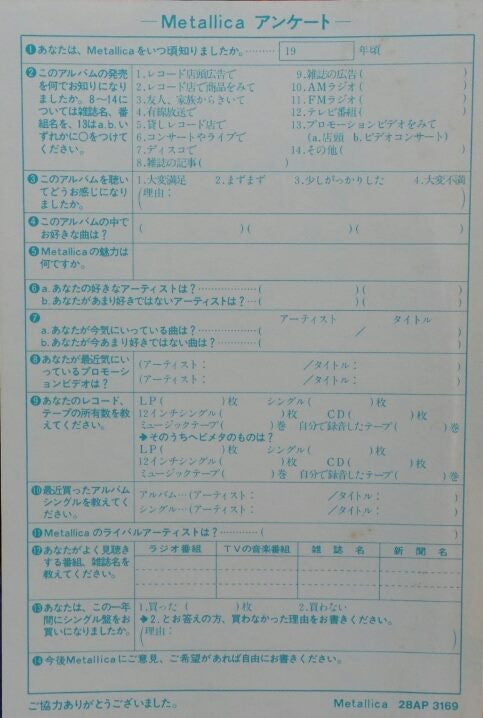 —Metallica アンケート—
❶あなたは、Metallicaをいつ頃知りましたか。……… 19 年頃
❷このアルバムの発売を何でお知りになりましたか。8〜14については雑誌名、番組名を、13はa.b.いずれかに○をつけてください。
1.レコード店頭広告で
2.レコード店で商品をみて
3.友人、家族からきいて
4.有線放送で
5.貸しレコード店で
6.コンサートやライブで
7.ディスコで
8.雑誌の記事( )
9.雑誌の広告( )
10.AMラジオ( )
11.FMラジオ( )
12.テレビ番組( )
13.プロモーションビデオをみて
(a.店頭 b.ビデオコンサート)
14.その他( )
❸このアルバムを聴いてどうお感じになりましたか。
1.大変満足 2.まずまず 3.少しがっかりした 4.大変不満
(理由: )
❹このアルバムの中でお好きな曲は?
( )( )( )
❺Metallicaの魅力は何ですか。
❻a.あなたの好きなアーティストは?………………( )( )
b.あなたがあまり好きではないアーティストは?…( )( )
❼ アーティスト タイトル
a.あなたが今気にいっている曲は?……………( / )
b.あなたが今あまり好きではない曲は?………( )
❽あなたが最近気にいっているプロモーションビデオは?
(アーティスト: /タイトル: )
(アーティスト: /タイトル: )
❾あなたのレコード、テープの所有数を教えてください。
LP( )枚 シングル( )枚
12インチシングル( )枚 CD( )枚
ミュージックテープ( )巻 自分で録音したテープ( )巻
➔そのうちヘビメタのものは?
LP( )枚 シングル( )枚
12インチシングル( )枚 CD( )枚
ミュージックテープ( )巻 自分で録音したテープ( )巻
❿最近買ったアルバムシングルを教えてください。
アルバム…(アーティスト: /タイトル: )
シングル…(アーティスト: /タイトル: )
⓫Metallicaのライバルアーティストは?…………( )
⓬あなたがよく見聴きする番組、雑誌名を教えてください。
ラジオ番組 TVの音楽番組 雑誌名 新聞名
⓭あなたは、この一年間にシングル盤をお買いになりましたか。
1.買った( )枚 2.買わない
➔2.とお答えの方、買わなかった理由をお書きください。
(理由: )
⓮今後Metallicaにご意見、ご希望があれば自由にお書きください。
ご協力ありがとうございました。 Metallica 28AP 3169